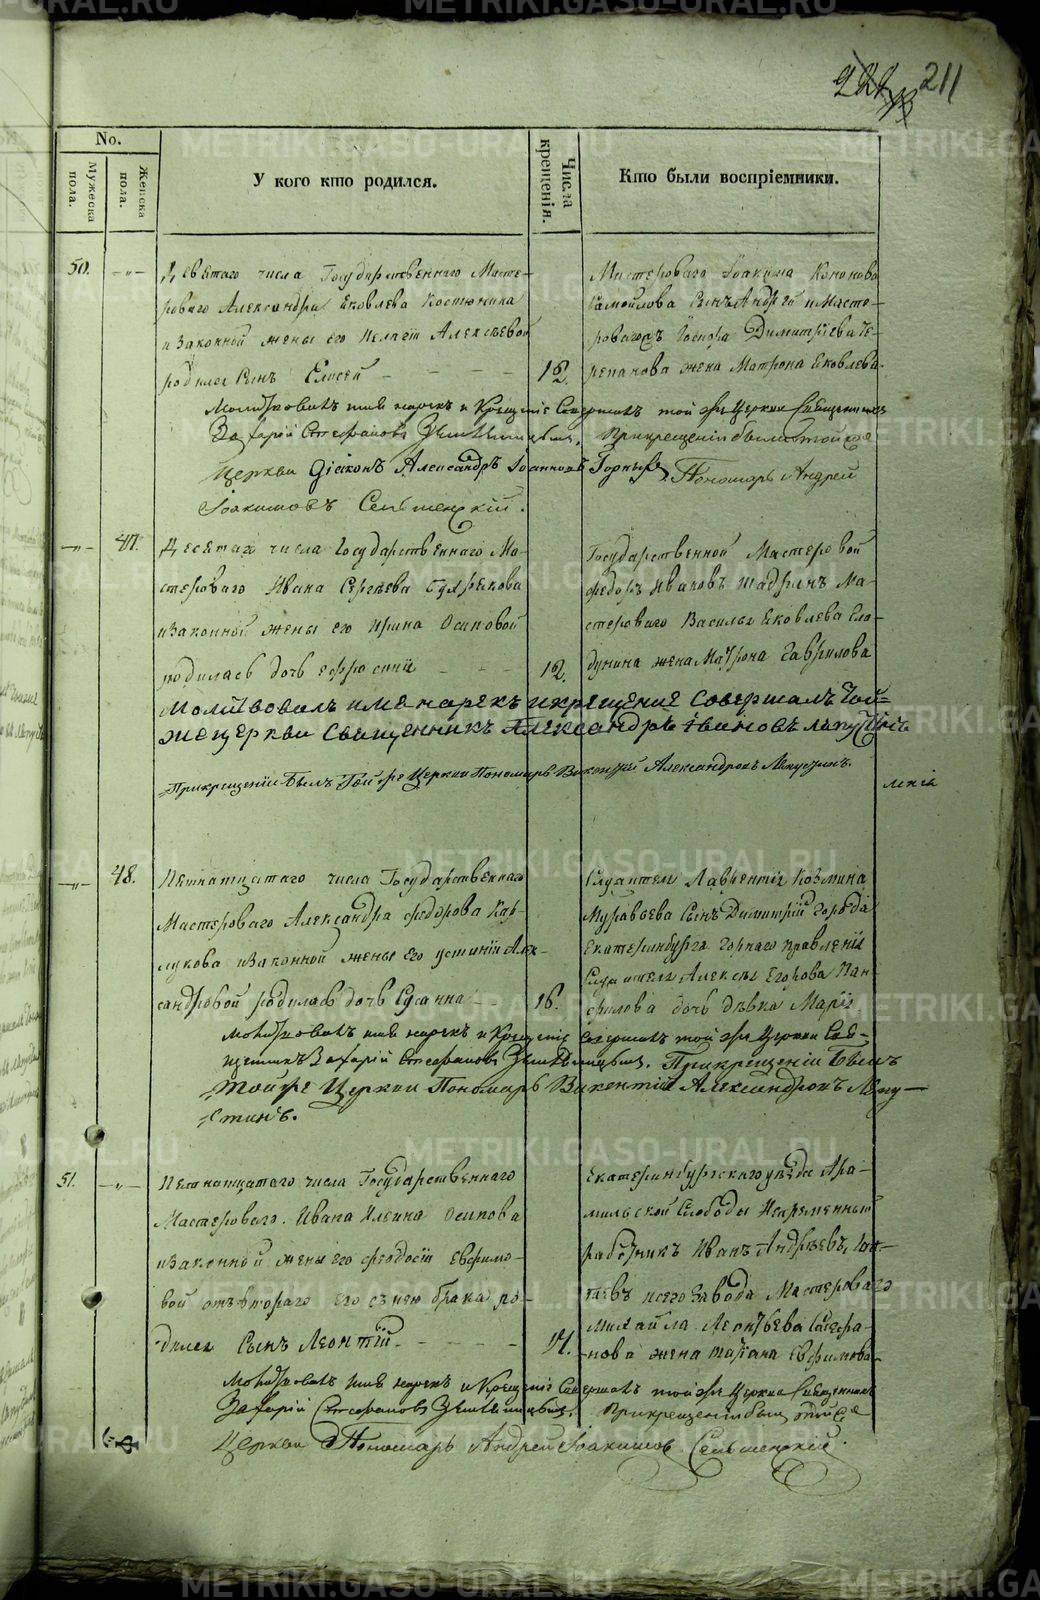 211
No.
Мужеска пола.
Женска пола.
У кого кто родился.
Числа крещенія.
Кто были воспріемники.
50.
Девятаго числа Государственнаго Масте-
роваго Александра Яковлева Костюнина
и законной жены его Пелагіи Алексѣевой
родился сынъ Елисей
12.
Мастероваго Іоакима Кононова
Самойлова сынъ Андрей и Масте-
роваго Димитріева Че-
репанова жена Матрона Яковлева.
Молитвовалъ имя нарекъ и Крещеніе Совершалъ той же Церкви Священникъ
Захарій Стефановъ При крещеніи были той же
Церкви Діаконъ Александръ Іоанновъ Горныхъ, Пономарь Андрей
Іоакимовъ Сельменскій.
47.
Десятаго числа Государственнаго Ма-
стероваго Ивана Сергѣева
и законной жены его Ирины Осиповой
родилась дочь Ефросинія
12.
Государственной Мастеровой
Федоръ Ивановъ Шадринъ Ма-
стероваго Василья Яковлева Ела-
дунина жена Матрона Гаврилова
Молитвовалъ имя нарекъ и крещение совершалъ той-
же церкви священникъ Александръ Ивановъ Лапустинъ
При крещеніи былъ той же Церкви Пономарь Викентій Александровъ Лапустинъ.
48.
Пятнатцатаго числа Государственнаго
Мастероваго Александра Федорова Кар-
лукова и законной жены его Устиніи Алек-
сандровой родилась дочь Сусанна
16.
Служителя Лаврентія Козмина
Муравьева сынъ Димитрій города
Екатеринбурга горнаго правленія
Служителя Алексѣя Егорова Пан-
филова дочь дѣвка Марія
Молитвовалъ имя нарекъ и Крещеніе Совершалъ той же Церкви Свя-
щенникъ Захарій Стефановъ При крещеніи былъ
той же Церкви Пономарь Викентій Александровъ Лапу-
стинъ.
51.
Пятнатцатаго числа Государственнаго
Мастероваго Ивана Ильина Осипова
и законной жены его Феодосіи Ефимо-
вой отъ втораго его с нею брака ро-
дился сынъ Леонтій
17.
Екатеринбургскаго уѣзда Ара-
мильской Слободы Непременный
работникъ Иванъ Андрѣевъ
сего Завода Мастероваго
Михайла Леонтьева Стефа-
нова жена Татіана Ефимова
Молитвовалъ имя нарекъ и Крещеніе Совершалъ той же Церкви Священникъ
Захарій Стефановъ При крещеніи былъ той же
Церкви Пономарь Андрей Іоакимовъ Сельменскій.
METRIKI.GASO-URAL.RU